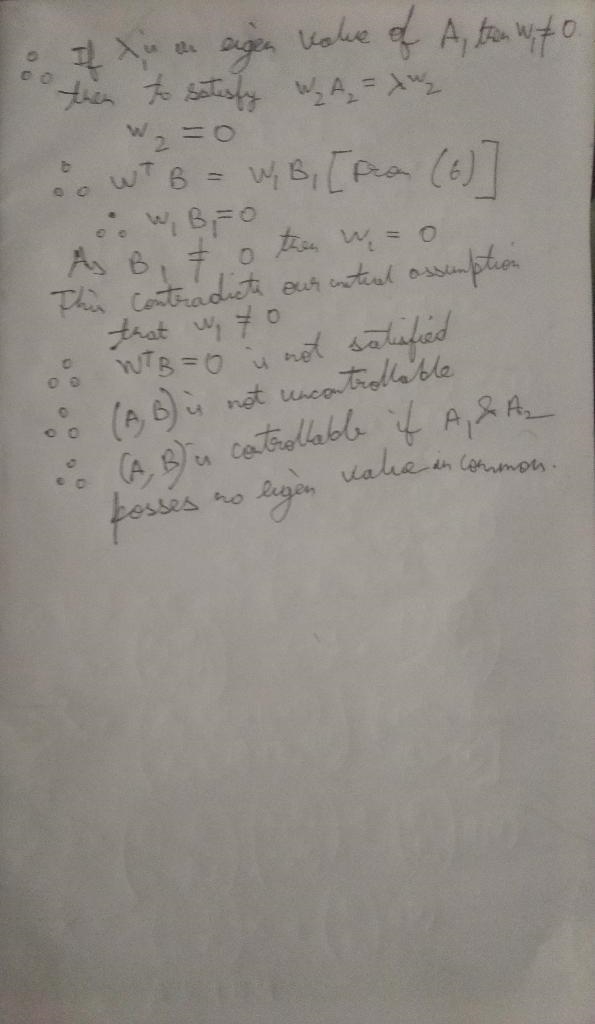 ∴ If λ is an eigen value of A₁ then w₁ ≠ 0
then to satisfy w₂A₂ = λw₂
w₂ = 0
∴ wᵀB = w₁B₁ [From (6)]
∴ w₁B₁ = 0
As B₁ ≠ 0 then w₁ = 0
This contradicts our initial assumption
that w₁ ≠ 0
∴ wᵀB = 0 is not satisfied
∴ (A, B) is not uncontrollable
∴ (A, B) is controllable if A₁ & A₂
posses no eigen value in common.